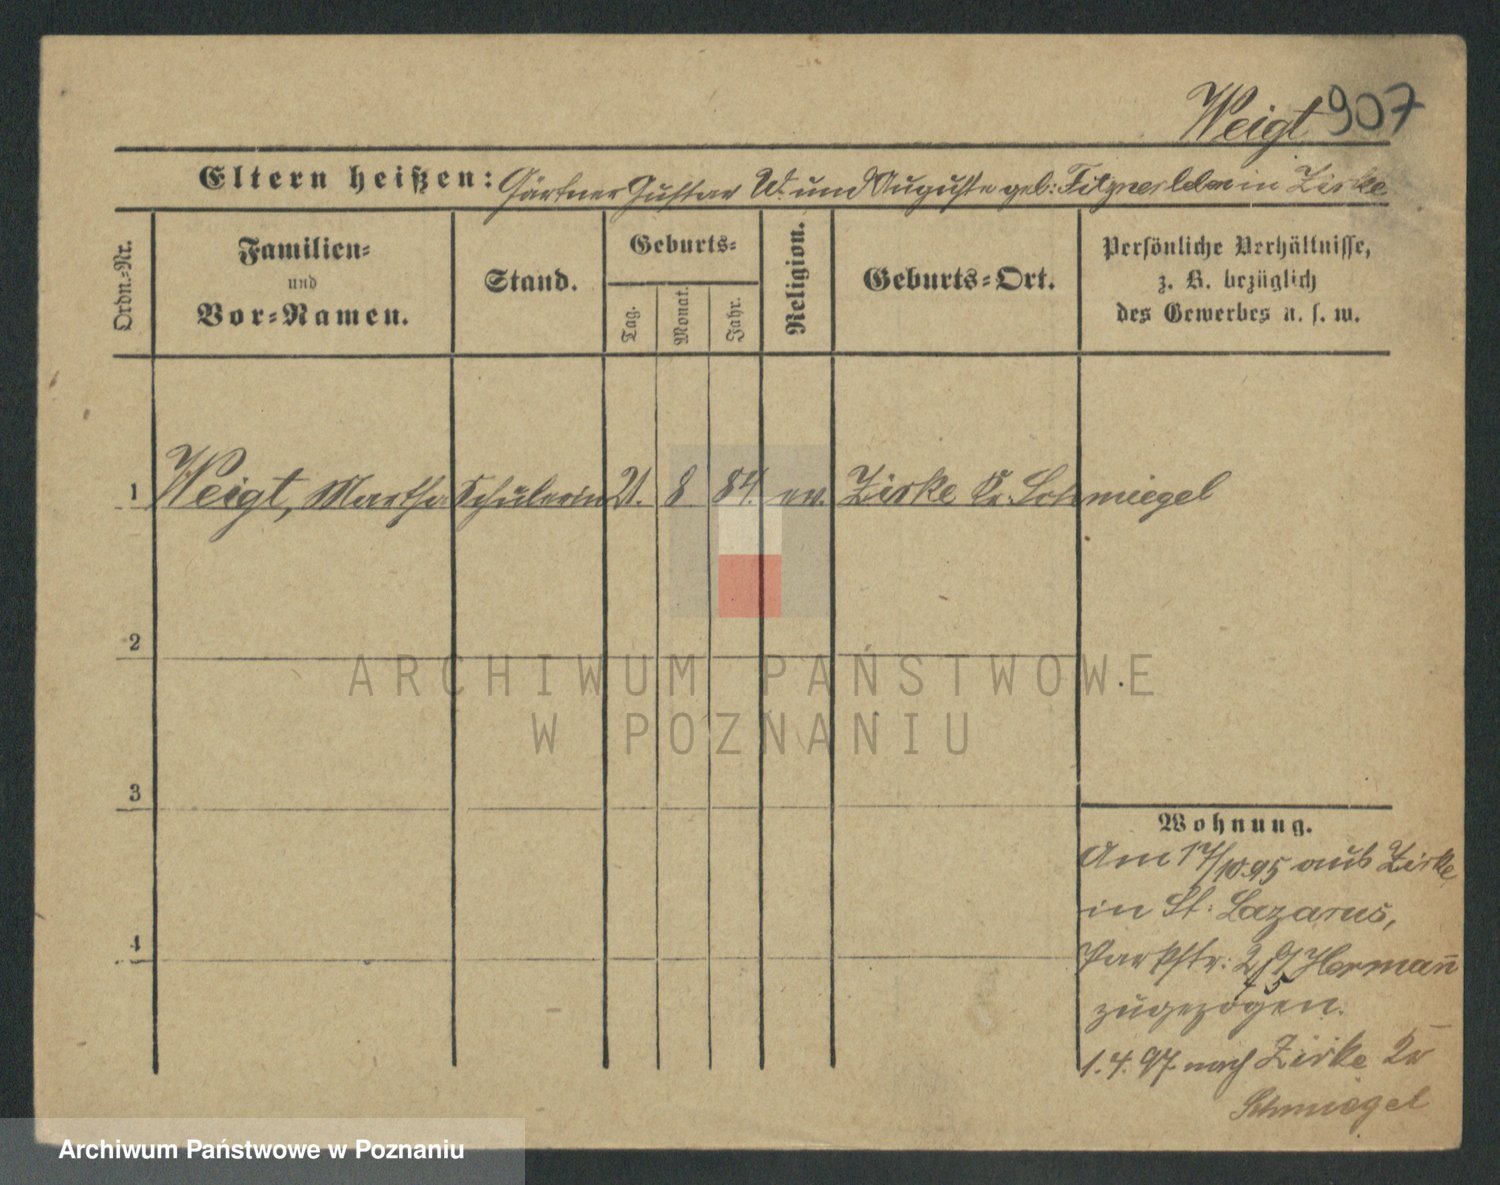 Weigt 907
Eltern heißen: Gärtner Gustav W. und Auguste geb: in Zirke
Ordn.-Nr.
Familien-
und
Vor-Namen.
Stand.
Geburts-
Tag.
Monat.
Jahr.
Religion.
Geburts-Ort.
Persönliche Verhältnisse,
z. B. bezüglich
des Gewerbes u. s. w.
1 Weigt, Martha Schülerin 21. 8 84. ev. Zirke Kr. Schmiegel
2
3
4
Wohnung.
Am 17/10 95 aus Zirke
in St. Lazarus,
Parkstr: Hermann
zugezogen.
1.4.97. nach Zirke Kr
Schmiegel
ARCHIWUM PAŃSTWOWE
W POZNANIU
Archiwum Państwowe w Poznaniu